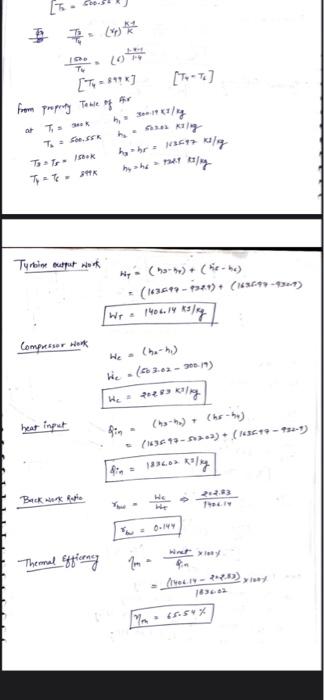 [T₂ = 500.55 K]
T₃/T₄ = (rp)^((k-1)/k)
1500/T₄ = (6)^((1.4-1)/1.4)
[T₄ = 899 K] [T₄ = T₆]
from property Table of Air
at T₁ = 300K h₁ = 300.19 KJ/kg
T₂ = 500.55K h₂ = 503.02 KJ/kg
T₃ = T₅ = 1500K h₃ = h₅ = 1635.97 KJ/kg
T₄ = T₆ = 899K h₄ = h₆ = 932.9 KJ/kg
Turbine output work
W_T = (h₃-h₄) + (h₅-h₆)
= (1635.97 - 932.9) + (1635.97 - 932.9)
W_T = 1406.14 KJ/kg
Compressor work
W_c = (h₂-h₁)
W_c = (503.02 - 300.19)
W_c = 202.83 KJ/kg
heat input
Q_in = (h₃-h₂) + (h₅-h₄)
= (1635.97 - 503.02) + (1635.97 - 932.9)
Q_in = 1836.02 KJ/kg
Back work Ratio
r_bw = W_c/W_T ⇒ 202.83/1406.14
r_bw = 0.144
Thermal Efficiency
η_th = W_net/Q_in × 100%
= (1406.14 - 202.83)/1836.02 × 100%
η_th = 65.54 %